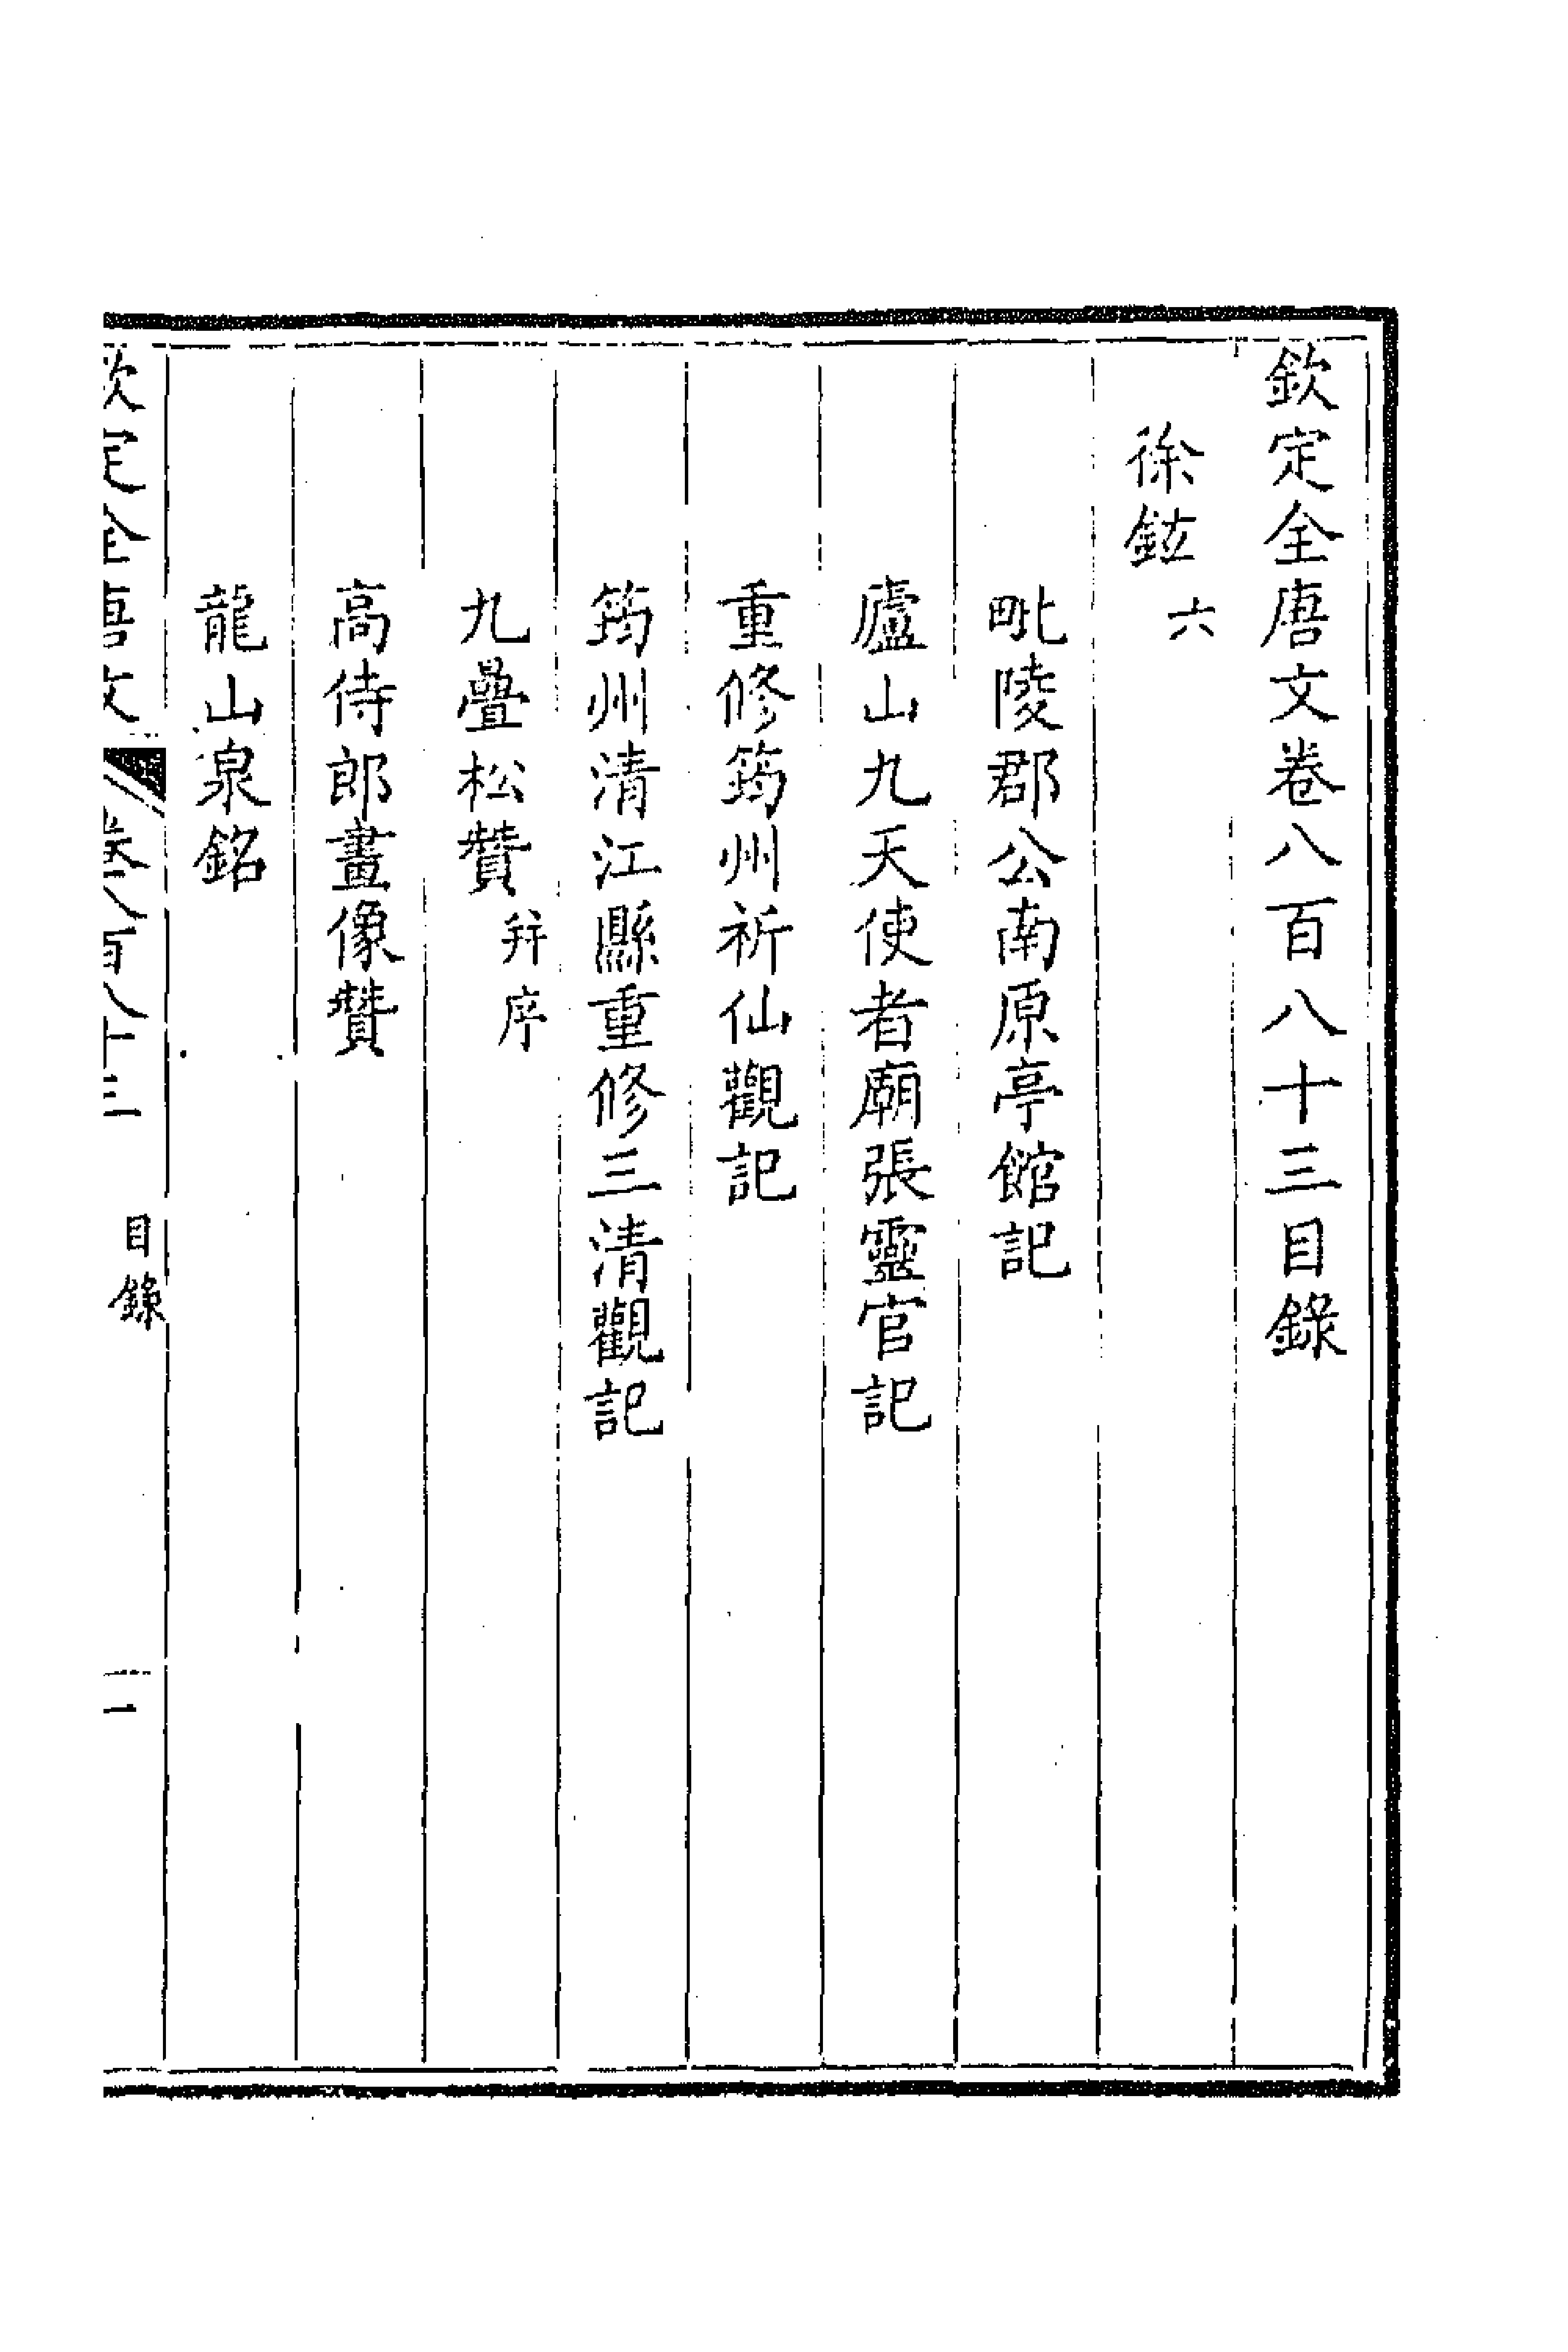 欽定全唐文卷八百八十三目錄
徐鉉六
毗陵郡公南原亭館記
廬山九天使者廟張靈官記
重修筠州祈仙觀記
筠州清江縣重修三清觀記
九疊松贊并序
高侍郎畫像贊
龍山泉銘
欽定全唐文 卷八百八十三 目錄 一